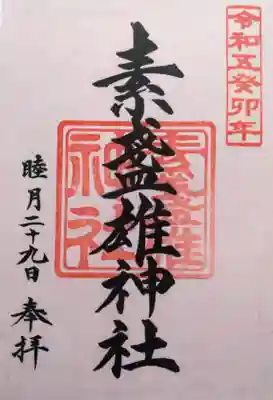 令和五癸卯年
素盞雄神社
素盞雄神社
奉拝
睦月二十九日